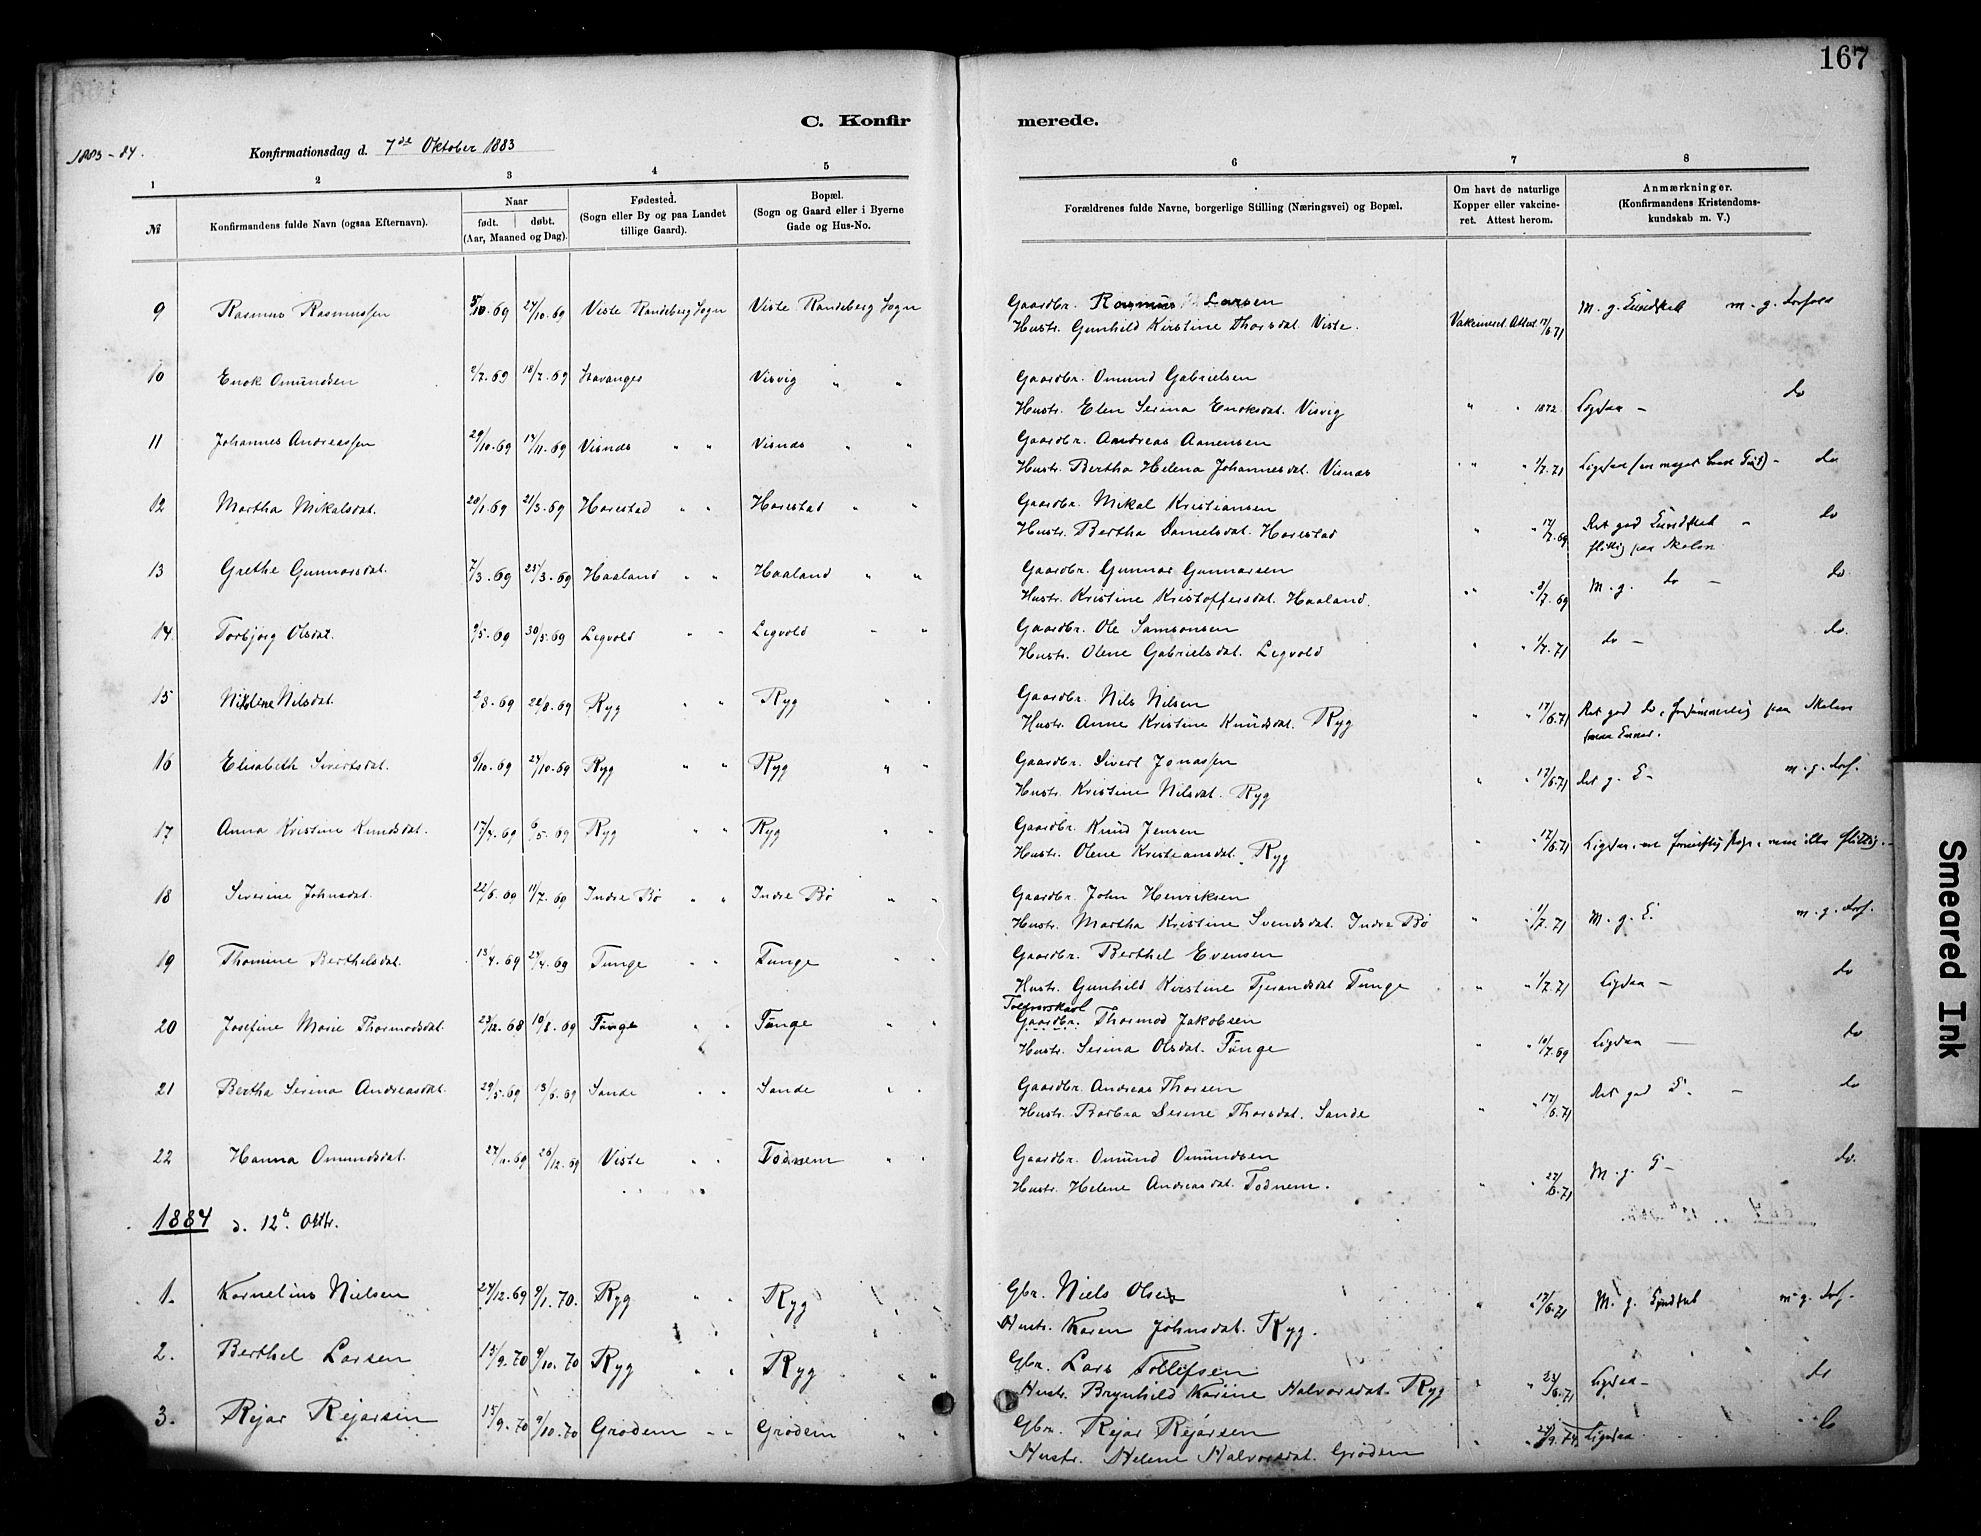 167
C. Konfirmerede.
1883-84.
Konfirmationsdag d. 7de Oktober 1883
1 2 3 4 5 6 7 8
№ Konfirmandens fulde Navn (ogsaa Efternavn). Naar født. døbt. (Aar, Maaned og Dag). Fødested. (Sogn eller By og paa Landet tillige Gaard). Bopæl. (Sogn og Gaard eller i Byerne Gade og Hus-No. Forældrenes fulde Navne, borgerlige Stilling (Næringsvei) og Bopæl. Om havt de naturlige Kopper eller vakcineret. Attest herom. Anmærkninger. (Konfirmandens Kristendomskundskab m. V.)
9 Rasmus Rasmussen 5/10.69 24/10.69 Viste Randeberg Sogn Viste Randeberg Sogn Gaardbr. Rasmus Larsen M. g. Kundskab m. g. Forhold
Hustr. Gunhild Kirstine Thorsdat. Viste. Vakcineret Attest 17/6.71
10 Enok Omundsen 2/7.69 18/7.69 Stavanger Visvig " " Gaardbr. Omund Gabrielsen do
Hustr. Elen Serina Enoksdat. Visvig " " 1872 Ligesaa -
11 Johannes Andreassen 29/10.69 14/11.69 Visnæs " " Visnæs " " Gaardbr. Andreas Aanensen
Hustr. Bertha Helena Johannesdat. Visnæs " " " 1/7.71 Ligesaa do
12 Martha Mikalsdat. 28/1.69 21/3.69 Harestad " " Harestad " " Gaardbr. Mikal Kristiansen
Hustr. Bertha Danielsdat. Harestad " " 17/7.69 Ret god Kundskab - do
flittig paa Skolen
13 Grethe Gunnarsdat. 7/3.69 25/3.69 Haaland " " Haaland " " Gaardbr. Gunnar Gunnarsen
Hustr. Kristine Kristoffersdat. Haaland. " " " 2/7.69 M. g. do - do
14 Torbjørg Olsdat. 9/5.69 30/5.69 Legvold " " Legvold " " Gaardbr. Ole Samsonsen
Hustr. Olene Gabrielsdat. Legvold " " 1/7.71 do - do.
15 Nikoline Nilsdat. 2/8.69 22/8.69 Ryg " " Ryg " " Gaardbr. Nils Nilsen
Hustr. Anne Kristine Knudsdat. Ryg " " 17/6.71 Ret god do, forsømmelig paa Skolen
16 Elisabeth Sivertsdat. 6/10.69 24/10.69 Ryg " " Ryg " " Gaardbr. Sivert Jonassen
Hustr. Kristine Nilsdat. Ryg " " 17/6.71 Ret g. K- m. g. Forh.
17 Anna Kristine Knudsdat. 17/4.69 6/5.69 Ryg " " Ryg " " Gaardbr. Knud Jensen
Hustr. Olene Kristiansdat. Ryg " " 17/6.71 Ligesaa, en fornuftig Pige, men ikke flittig. -
18 Siverine Johnsdat. 22/6.69 11/7.69 Indre Bø " " Indre Bø " " Gaardbr. John Henriksen
Hustr. Martha Kristine Svendsdat. Indre Bø " " 1/7.71 M. g. K. m. g. Forh.
19 Thomine Berthelsdat. 13/4.69 24/4.69 Tunge " " Tunge " " Gaardbr. Berthel Evensen
Hustr. Gunhild Kirstine Tjerandsdat Tunge " " 1/7.71 Ligesaa - do
20 Josefine Marie Thormodsdat. 23/12.68 10/8.69 Tunge " " Tunge " " Toldroerskarl Gaardbr. Thormod Jakobsen
Hustr. Serina Olsdat. Tunge " " 10/7.69 Ligesaa - do
21 Bertha Serina Andreasdat. 29/5.69 13/6.69 Sande " " Sande " " Gaardbr. Andreas Thorsen
Hustr. Barbra Serine Thorsdat. Sande " " 17/6.71 Ret god K. - do
22 Hanna Omundsdat. 27/11.69 26/12.69 Viste " " Todnem " " Gaardbr. Omund Omundsen
Hustr. Helene Andreasdat. Todnem. " " 24/6.71 M. g. K - do.
1884 d. 12te Oktbr.
1. Kornelius Nielsen 24/12.69 9/1.70. Ryg " " Ryg " " Gbr. Niels Olsen
Hustr. Karen Johnsdat. Ryg. " " 17/6.71 M. g. Kundskab m. g. Forh.
2. Berthel Larsen 13/9.70 9/10.70 Ryg " " Ryg " " Gbr. Lars Tollefsen
Hustr. Brynhild Karine Halvorsdat. Ryg " " 24/6.71 Ligesaa - do
3. Rejar Rejarsen 15/9.70 9/10.70 Grødem " " Grødem " " Gbr. Rejar Rejarsen
Hustr. Helene Halvorsdat. Grødem " " 27/9.74 Ligesaa. do
Smeared Ink